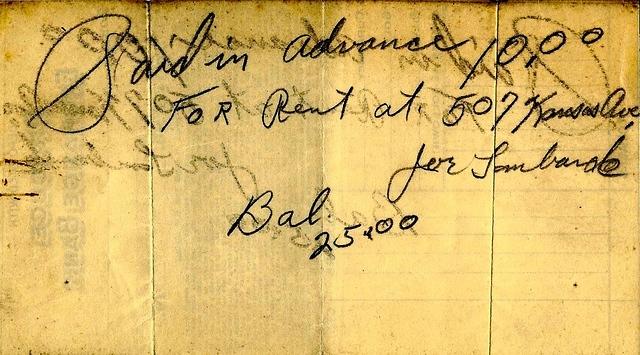 Paid in advance 10.00
FOR Rent at 507 Kansas Ave,
Joe Lombardo
Bal. 25.00